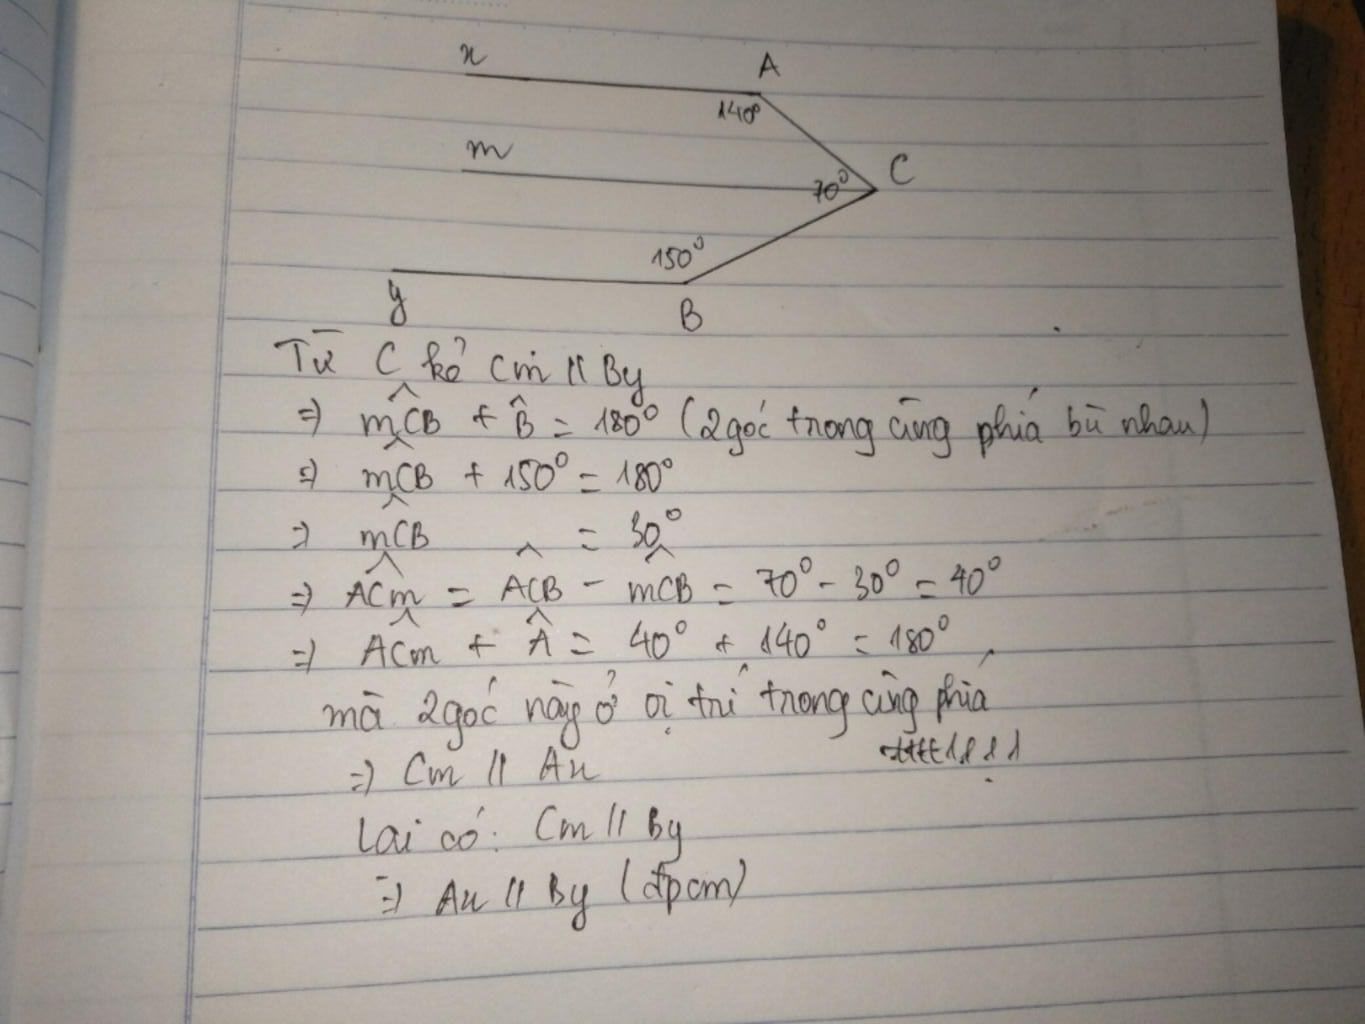 x
A
140°
m
70°
C
150°
y
B
Từ C kẻ Cm // By
=> mCB + B̂ = 180° (2 góc trong cùng phía bù nhau)
=> mCB + 150° = 180°
=> mCB = 30°
=> ACm = ACB - mCB = 70° - 30° = 40°
=> ACm + Â = 40° + 140° = 180°
mà 2 góc này ở vị trí trong cùng phía
=> Cm // Ax
Lại có: Cm // By
=> Ax // By (đpcm)